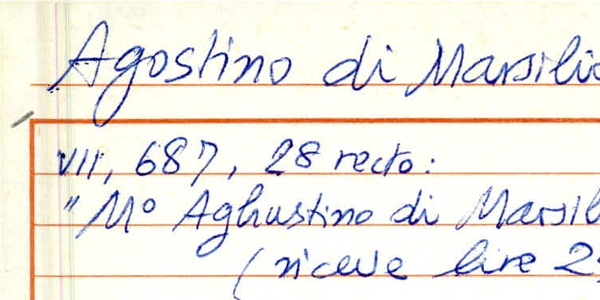 Agostino di Marsilio
VII, 687, 28 recto:
"M° Aghustino di Marsil
(riceve lire 2